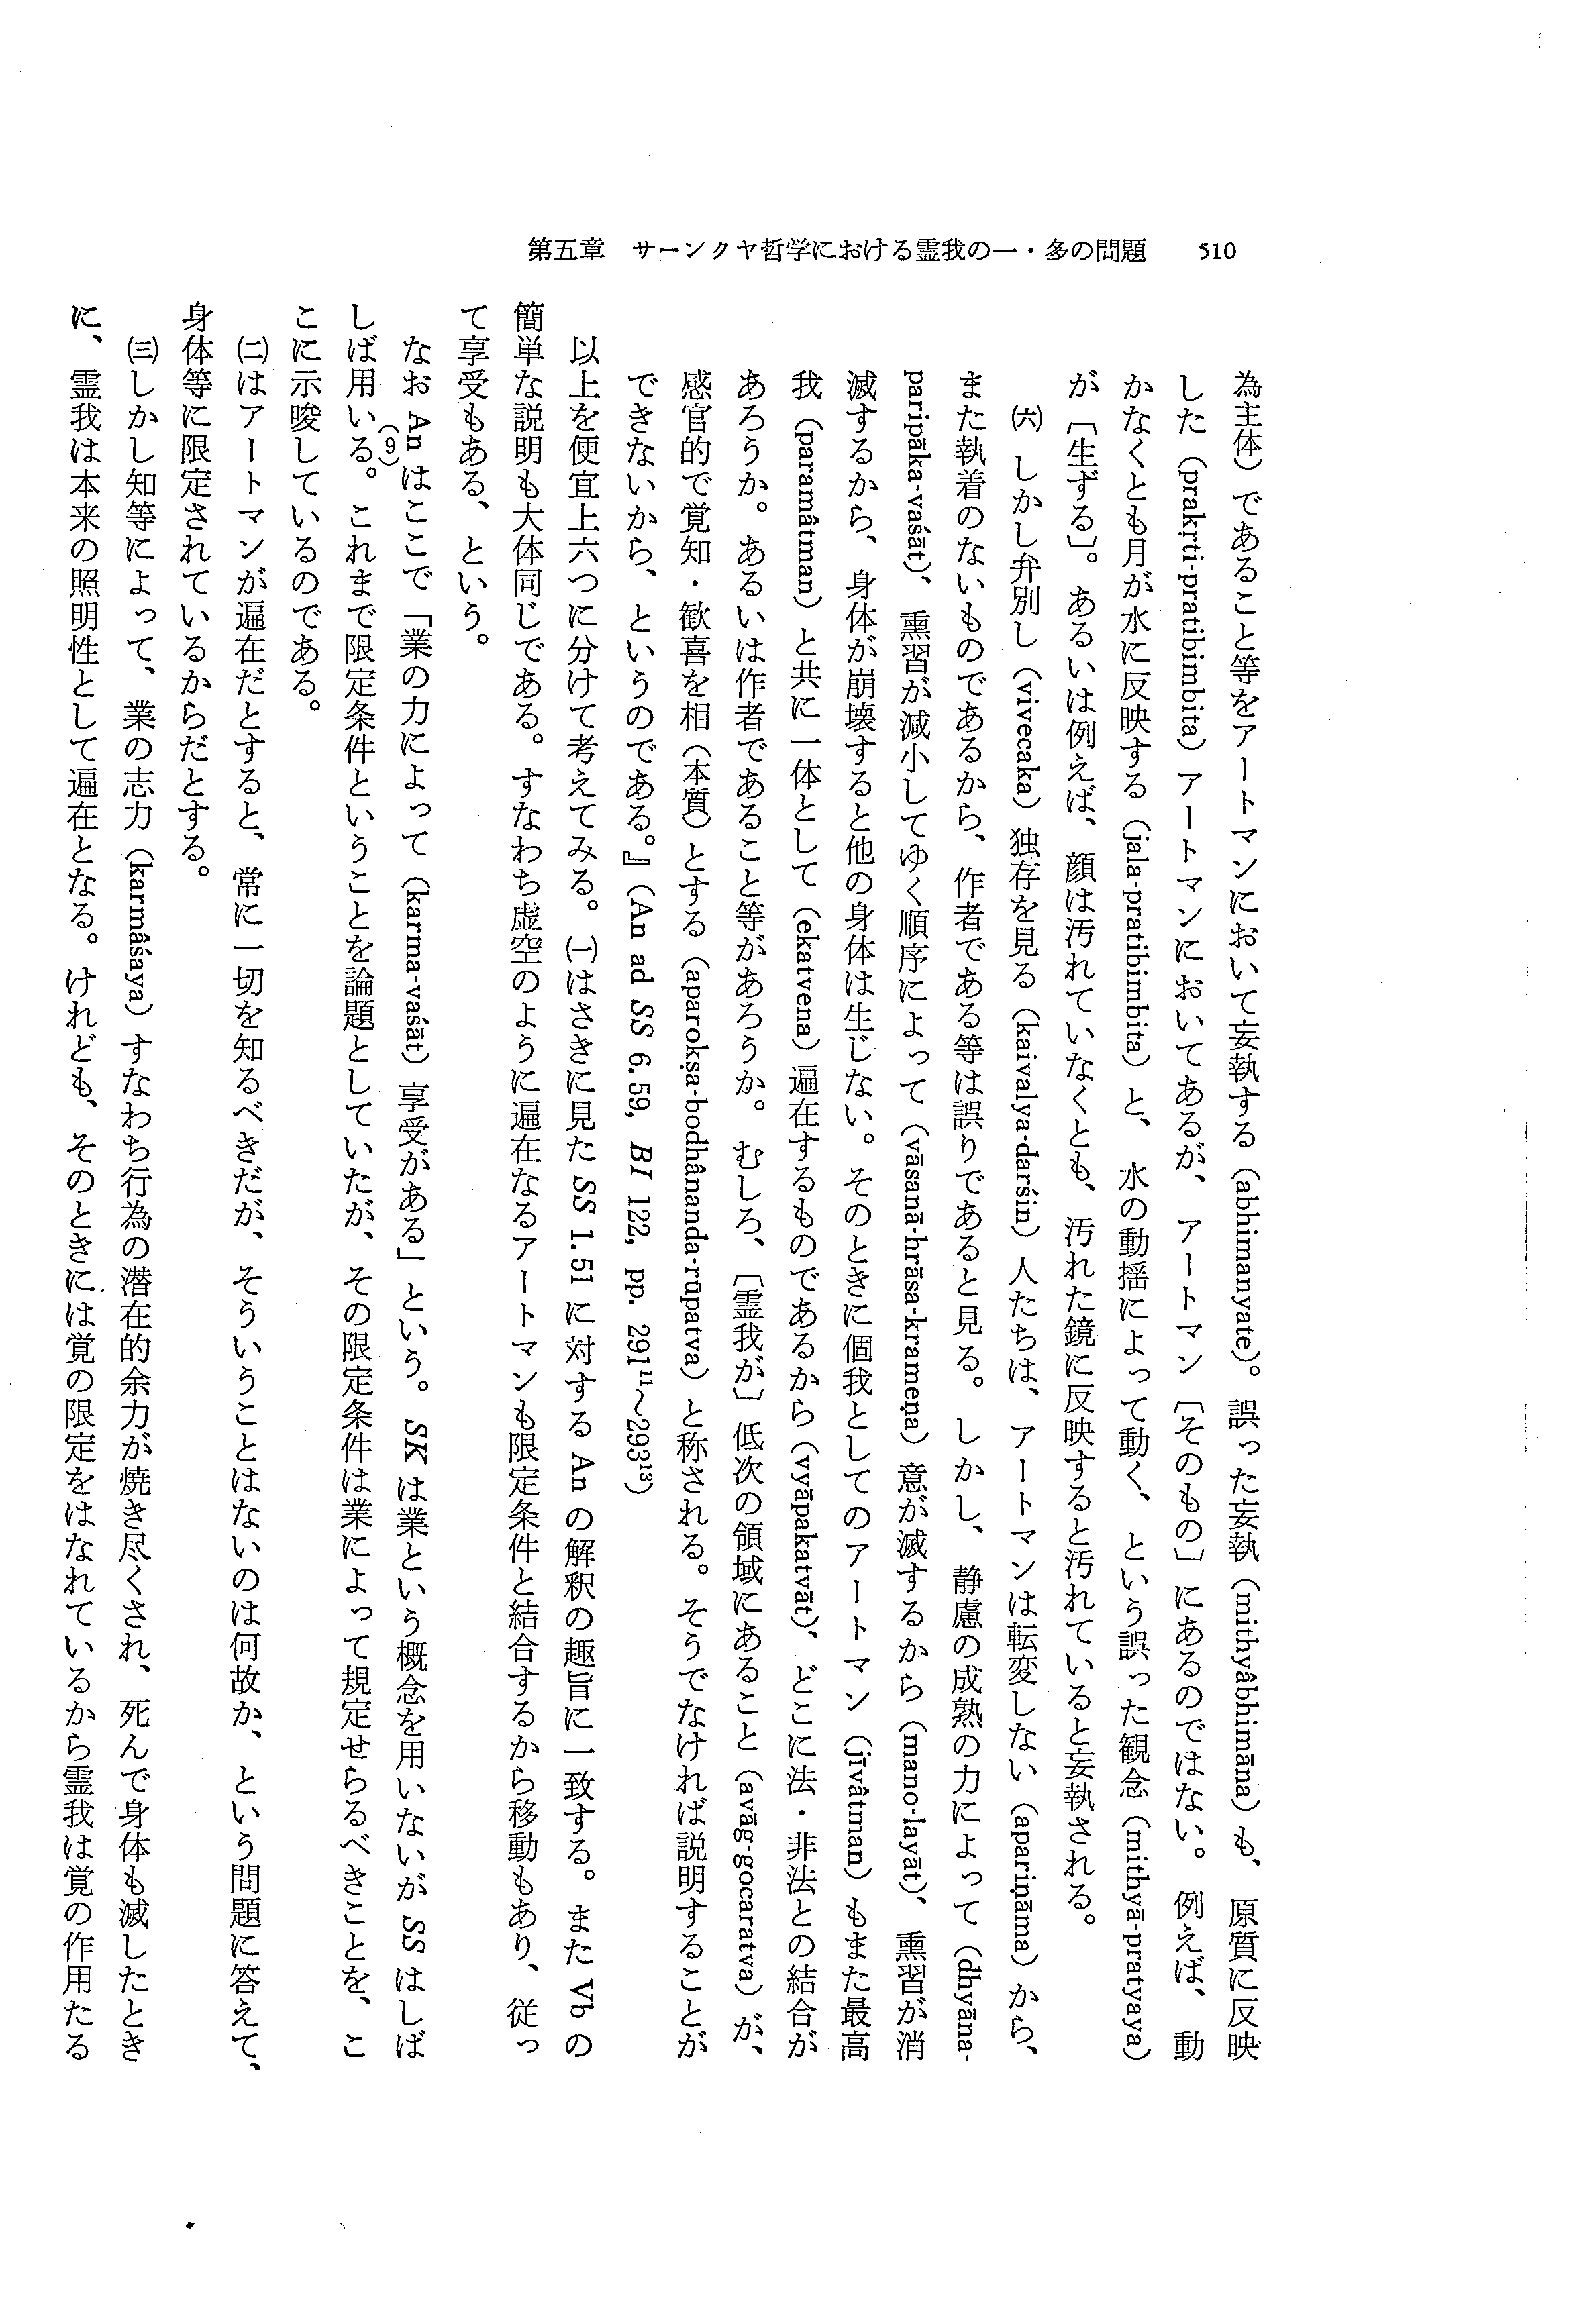 第五章　サーンクヤ哲学における霊我の一・多の問題　510
為主体）であること等をアートマンにおいて妄執する（abhimanyate）。誤った妄執（mithyâbhimāna）も、原質に反映
した（prakṛti-pratibimbita）アートマンにおいてあるが、アートマン〔そのもの〕にあるのではない。例えば、動
かなくとも月が水に反映する（jala-pratibimbita）と、水の動揺によって動く、という誤った観念（mithyā-pratyaya）
が〔生ずる〕。あるいは例えば、顔は汚れていなくとも、汚れた鏡に反映すると汚れていると妄執される。
㈥ しかし弁別し（vivecaka）独存を見る（kaivalya-darśin）人たちは、アートマンは転変しない（apariṇāma）から、
また執着のないものであるから、作者である等は誤りであると見る。しかし、静慮の成熟の力によって（dhyāna-
paripāka-vaśāt）、熏習が減小してゆく順序によって（vāsanā-hrāsa-krameṇa）意が滅するから（mano-layāt）、熏習が消
滅するから、身体が崩壊すると他の身体は生じない。そのときに個我としてのアートマン（jīvâtman）もまた最高
我（paramâtman）と共に一体として（ekatvena）遍在するものであるから（vyāpakatvāt）、どこに法・非法との結合が
あろうか。あるいは作者であること等があろうか。むしろ、〔霊我が〕低次の領域にあること（avāg-gocaratva）が、
感官的で覚知・歓喜を相（本質）とする（aparokṣa-bodhânanda-rūpatva）と称される。そうでなければ説明することが
できないから、というのである。』（An ad SS 6.59, BI 122, pp. 291¹¹～293¹³）
以上を便宜上六つに分けて考えてみる。㈠はさきに見た SS 1.51 に対する An の解釈の趣旨に一致する。また Vb の
簡単な説明も大体同じである。すなわち虚空のように遍在なるアートマンも限定条件と結合するから移動もあり、従っ
て享受もある、という。
なお An はここで「業の力によって（karma-vaśāt）享受がある」という。SK は業という概念を用いないが SS はしば
しば用いる。(9)これまで限定条件ということを論題としていたが、その限定条件は業によって規定せらるべきことを、こ
こに示唆しているのである。
㈡はアートマンが遍在だとすると、常に一切を知るべきだが、そういうことはないのは何故か、という問題に答えて、
身体等に限定されているからだとする。
㈢しかし知等によって、業の志力（karmâśaya）すなわち行為の潜在的余力が焼き尽くされ、死んで身体も滅したとき
に、霊我は本来の照明性として遍在となる。けれども、そのときには覚の限定をはなれているから霊我は覚の作用たる